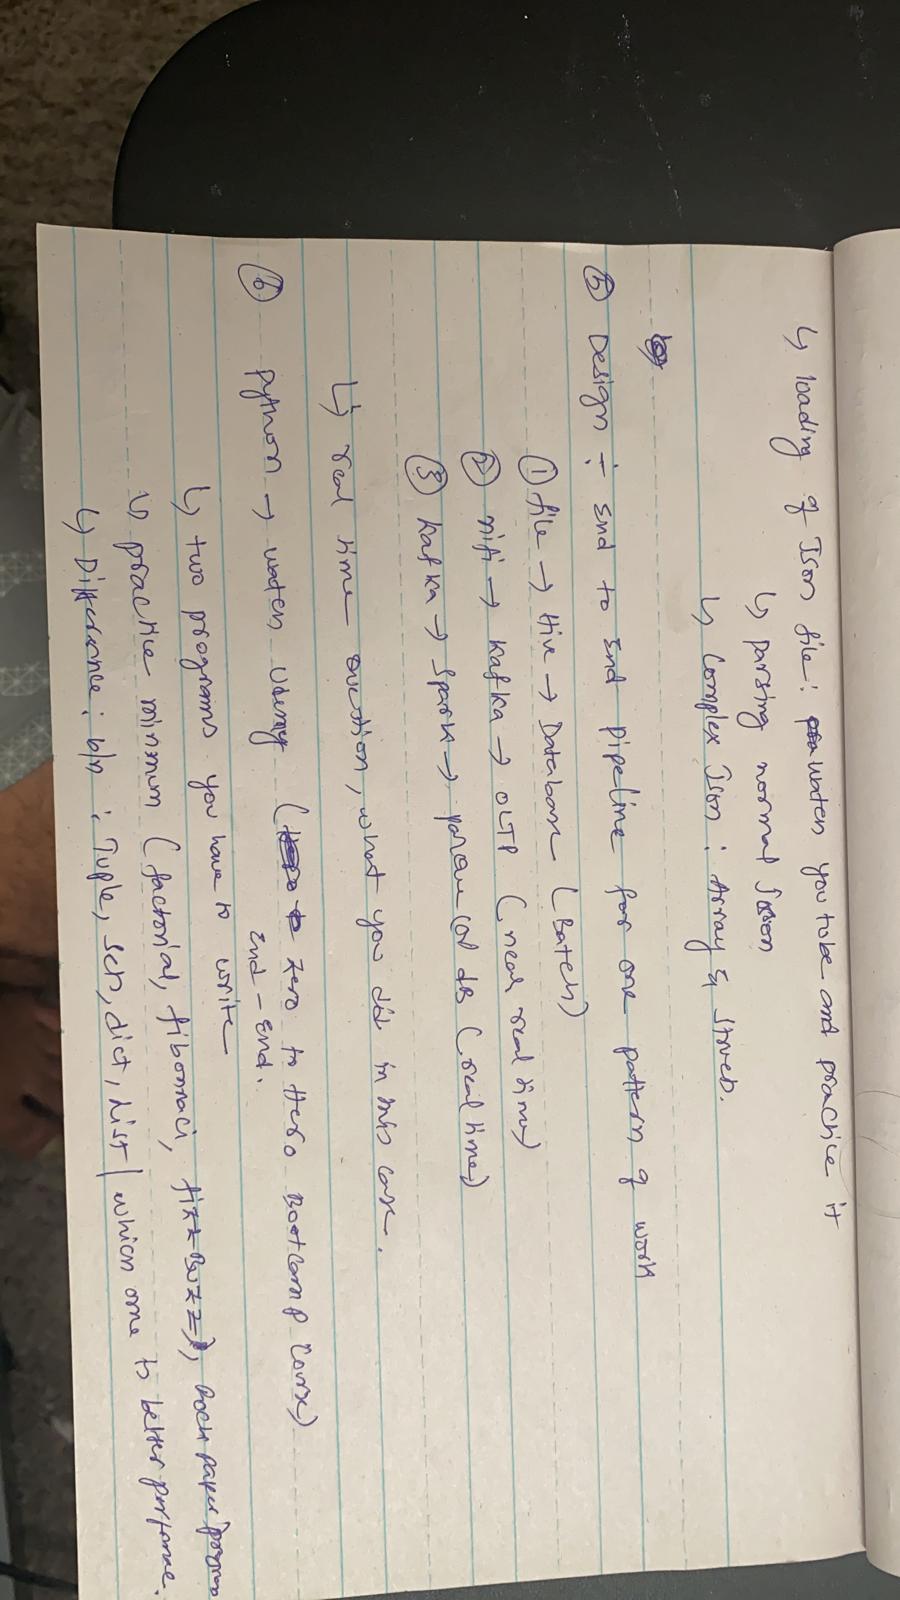 ↳ loading of Json file: waten you tube and practice it
↳ parsing normal Json
↳ Complex Json : Array & struct.
⑤ Design ÷ End to End pipeline for one pattern of work
① file → Hive → Database (Batch)
② nifi → Kafka → OLTP (near real time)
③ Kafka → Spark → (or db (real time)
↳ real time question, what you did in this case.
⑥ python → waten Udemy (zero to Hero Bootcamp Course)
End - End.
↳ two programs you have to write
↳ practice minmum (factorial, fibonnaci, fizzBuzz), Rock paper program
↳ Difference : b/n : Tuple, set, dict, List | which one is better performance.